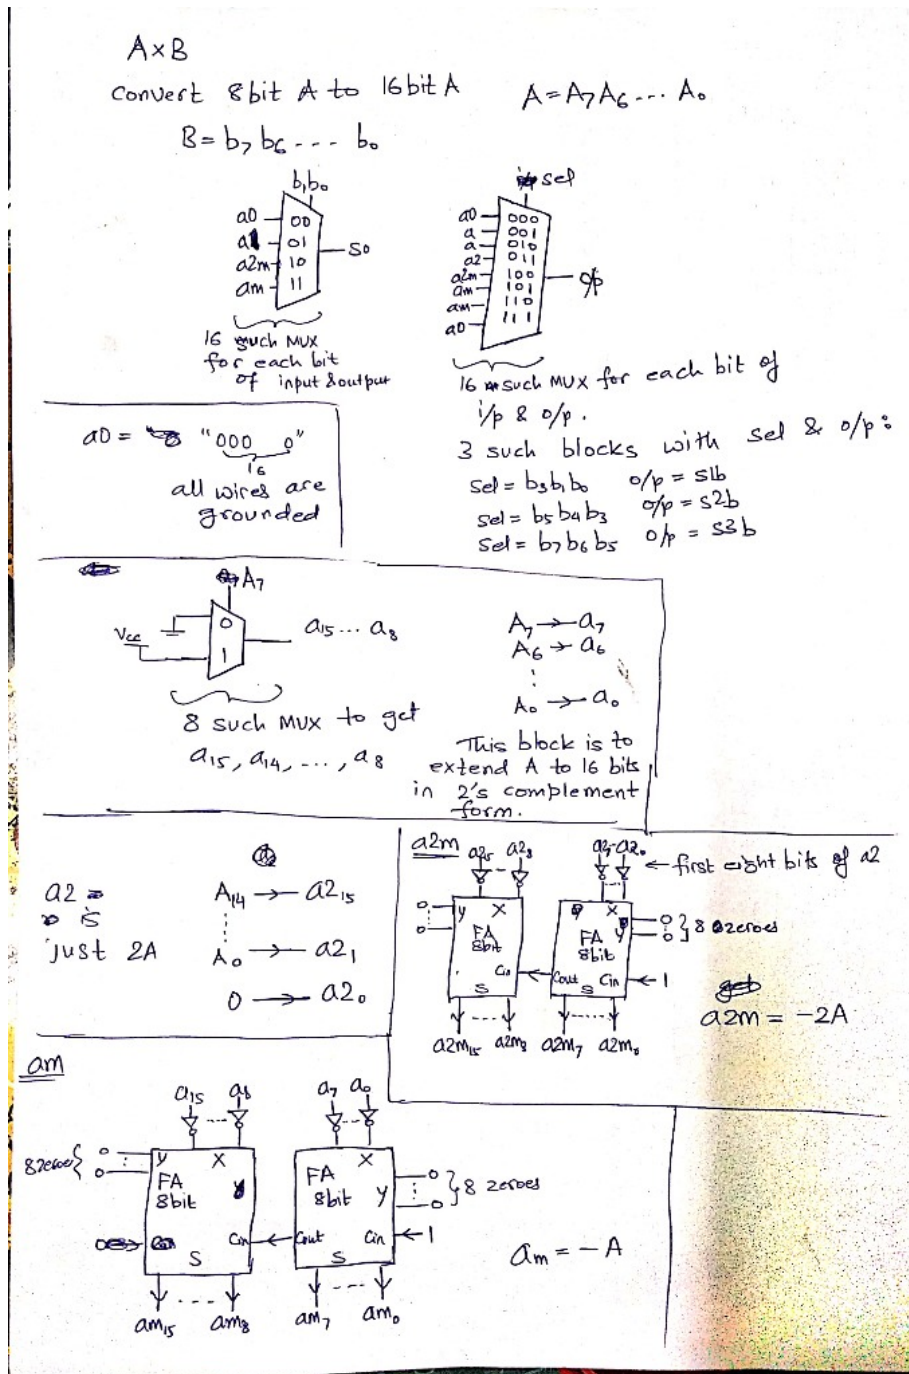 A×B
Convert 8bit A to 16bit A
A = A7 A6 --- A0
B = b7 b6 --- b0
b1b0
a0 00
01
a2m 10
am 11
S0
16 such MUX
for each bit
of input & output
sel
a0 000
a 001
a 010
a2 011
a2m 100
am 101
am 110
a0 111
o/p
16 such MUX for each bit of
i/p & o/p.
3 such blocks with sel & o/p:
sel = b3b1b0 o/p = s1b
sel = b5b4b3 o/p = s2b
sel = b7b6b5 o/p = s3b
a0 = "000 0"
16
all wires are
grounded
A7
0
Vcc
1
a15 ... a8
8 such MUX to get
a15, a14, ..., a8
A7 → a7
A6 → a6
⋮
A0 → a0
This block is to
extend A to 16 bits
in 2's complement
form.
a2
is
just 2A
A14 → a215
⋮
A0 → a21
0 → a20
a2m
a215 a28
a27-a20
← first eight bits of a2
0
0
Y X
FA
8bit
Cin
S
X
FA Y
8bit
Cout Cin
S
0
0
} 8 zeroes
← 1
a2m15 a2m8 a2m7 a2m0
a2m = -2A
am
a15 a8 a7 a0
8 zeroes {
0
0
Y X
FA
8bit
Cin
S
X
FA
8bit Y
Cout Cin
S
0
0
} 8 zeroes
← 1
am15 am8 am7 am0
am = -A